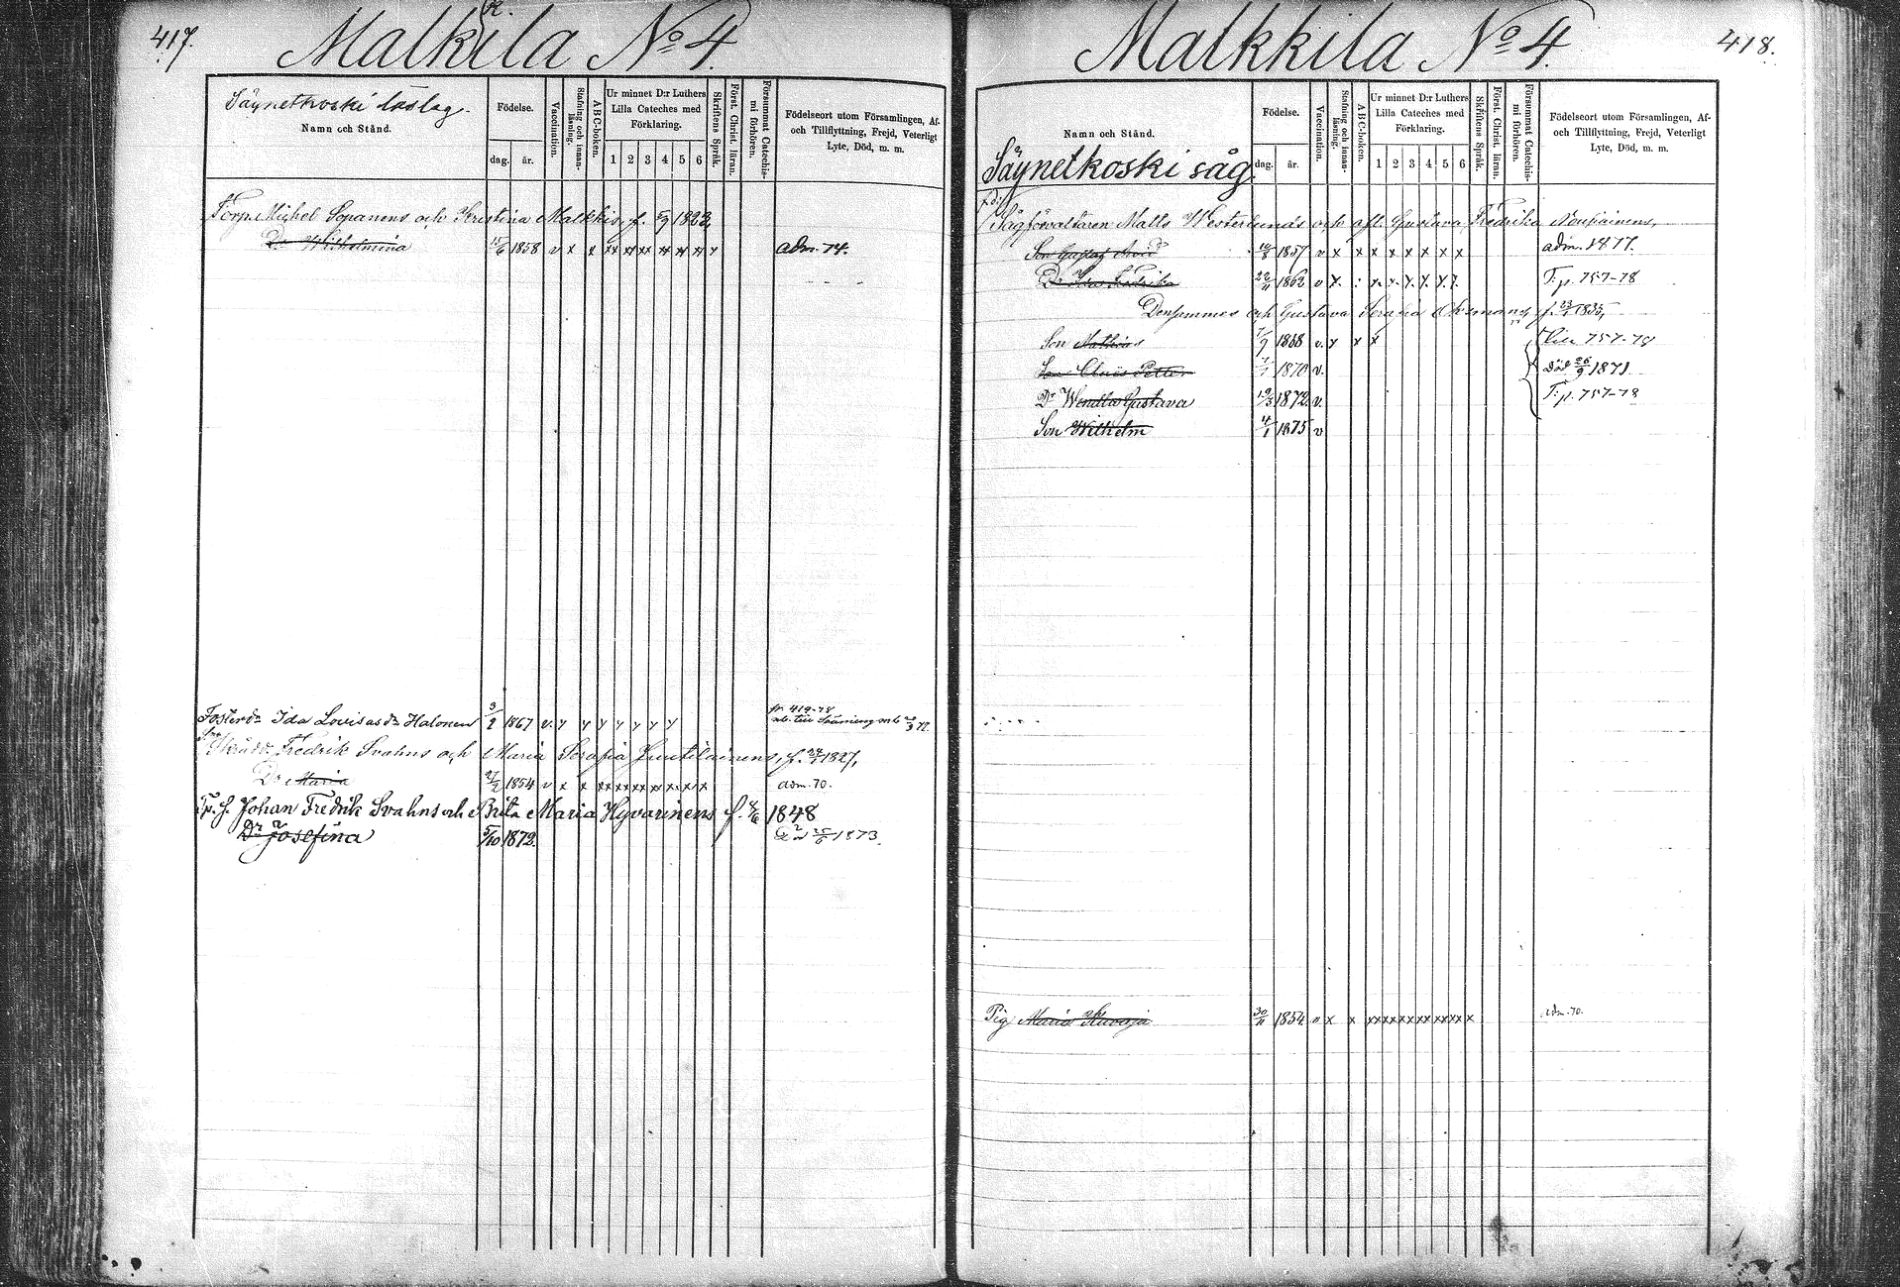 417.
Malkkila No 4.
Säynetkoski läslag.
Namn och Stånd.
Födelse.
dag. år.
Vaccination.
Stafning och innan-läsning.
A B C-boken.
Ur minnet D:r Luthers Lilla Cateches med Förklaring.
1 2 3 4 5 6
Skriftens Språk.
Först. Christ. läran.
Försummat Catechis-mi förhören.
Födelseort utom Församlingen, Af- och Tillflyttning, Frejd, Veterligt Lyte, Död, m. m.
Torp. Michel Sopanens och Kristina Malkkis, f. 1823,
Dr Wilhelmina 15/6 1858 v x x xx xx xx xx xx xx x adm. 74.
Fosterdr Ida Lovisasdr Halonen 3/2 1867 v. y y y y y y y fr. 419-78
Fredrik Svahns och Maria Serafia Juutilainens, f. 1827,
Dr Maria 27/2 1854 v x x xx xx xx xx x x x adm. 70.
Johan Fredrik Svahns och Brita Maria Hyvärinens f. 1848
Dr Josefina 5/10 1872. Död 25/6 1873.
418.
Malkkila No 4.
Namn och Stånd.
Säynetkoski såg.
Födelse.
dag. år.
Vaccination.
Stafning och innan-läsning.
A B C-boken.
Ur minnet D:r Luthers Lilla Cateches med Förklaring.
1 2 3 4 5 6
Skriftens Språk.
Först. Christ. läran.
Försummat Catechis-mi förhören.
Födelseort utom Församlingen, Af- och Tillflyttning, Frejd, Veterligt Lyte, Död, m. m.
f.d.
Sågförvaltaren Matts Westerlunds och afl. Gustava Fredrika Nousiainens,
Son Gustaf Arvid 1857 v x x x x x x x x adm. 1877.
Dr Ida Fredrika 22/11 1862 v x. : x. x. x. x. x. x. T. p. 757-78
Densammes och Gustava Serafia Oksmans, f. 1835,
Son Mathias 1868 v. x x x 757-78
Son Claës Petter 1870 v. Död 26/9 1871.
Dr Wendla Gustava 19/3 1872. v. T. p. 757-78
Son Wilhelm 4/1 1875 v
Pig. Maria Kuvaja 30/11 1852 v x x xx xx xx xx xx xx x adm. 70.